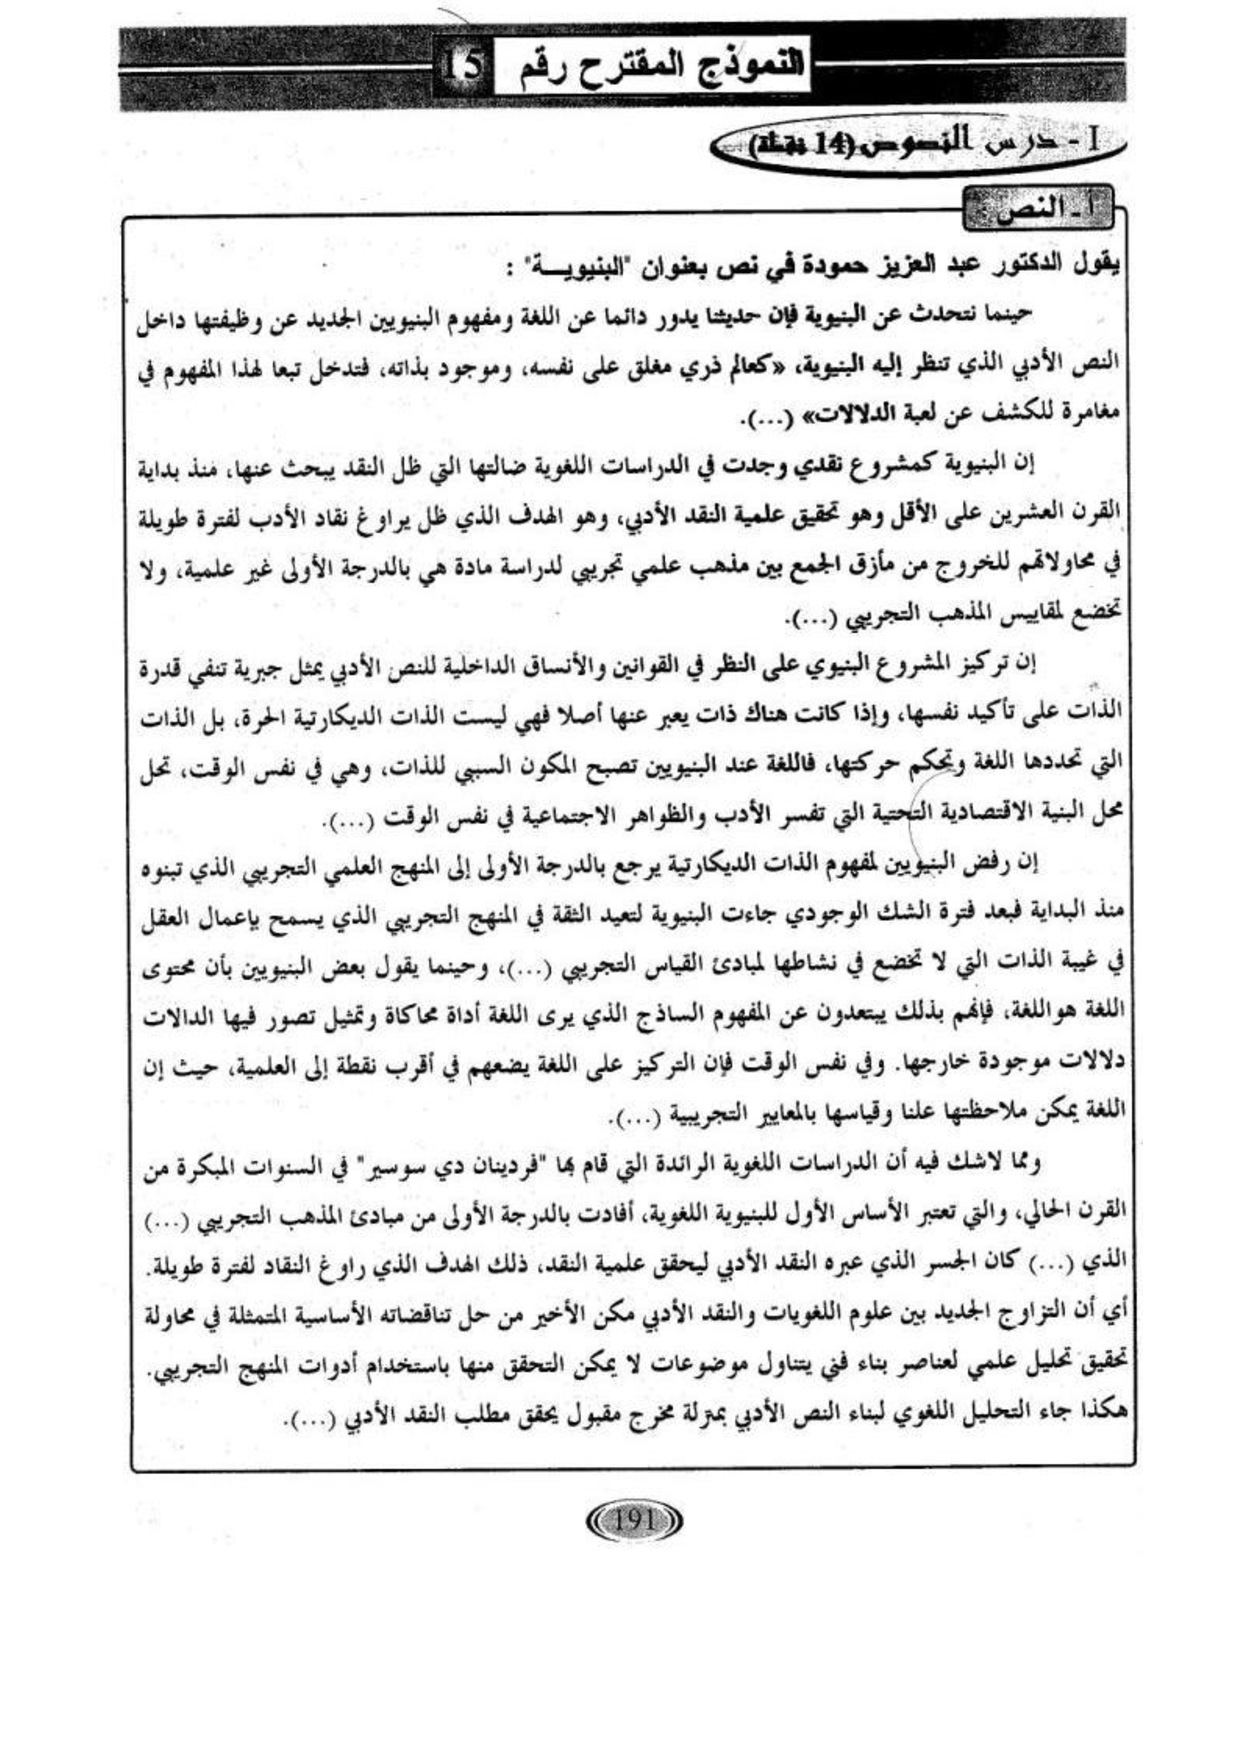 النموذج المقترح رقم 15
I - درس النصوص (14 نقطة)
أ - النص :
يقول الدكتور عبد العزيز حمودة في نص بعنوان "البنيويــة" :
حينما نتحدث عن البنيوية فإن حديثنا يدور دائما عن اللغة ومفهوم البنيويين الجديد عن وظيفتها داخل
النص الأدبي الذي تنظر إليه البنيوية، «كعالم ذري مغلق على نفسه، وموجود بذاته، فتدخل تبعا لهذا المفهوم في
مغامرة للكشف عن لعبة الدلالات» (...).
إن البنيوية كمشروع نقدي وجدت في الدراسات اللغوية ضالتها التي ظل النقد يبحث عنها، منذ بداية
القرن العشرين على الأقل وهو تحقيق علمية النقد الأدبي، وهو الهدف الذي ظل يراوغ نقاد الأدب لفترة طويلة
في محاولاتهم للخروج من مأزق الجمع بين مذهب علمي تجريبي لدراسة مادة هي بالدرجة الأولى غير علمية، ولا
تخضع لمقاييس المذهب التجريبي (...).
إن تركيز المشروع البنيوي على النظر في القوانين والأنساق الداخلية للنص الأدبي يمثل جبرية تنفي قدرة
الذات على تأكيد نفسها، وإذا كانت هناك ذات يعبر عنها أصلا فهي ليست الذات الديكارتية الحرة، بل الذات
التي تحددها اللغة وتحكم حركتها، فاللغة عند البنيويين تصبح المكون السببي للذات، وهي في نفس الوقت، تحل
محل البنية الاقتصادية التحتية التي تفسر الأدب والظواهر الاجتماعية في نفس الوقت (...).
إن رفض البنيويين لمفهوم الذات الديكارتية يرجع بالدرجة الأولى إلى المنهج العلمي التجريبي الذي تبنوه
منذ البداية فبعد فترة الشك الوجودي جاءت البنيوية لتعيد الثقة في المنهج التجريبي الذي يسمح بإعمال العقل
في غيبة الذات التي لا تخضع في نشاطها لمبادئ القياس التجريبي (...)، وحينما يقول بعض البنيويين بأن محتوى
اللغة هو اللغة، فإنهم بذلك يبتعدون عن المفهوم الساذج الذي يرى اللغة أداة محاكاة وتمثيل تصور فيها الدالات
دلالات موجودة خارجها. وفي نفس الوقت فإن التركيز على اللغة يضعهم في أقرب نقطة إلى العلمية، حيث إن
اللغة يمكن ملاحظتها علنا وقياسها بالمعايير التجريبية (...).
ومما لاشك فيه أن الدراسات اللغوية الرائدة التي قام بها "فردينان دي سوسير" في السنوات المبكرة من
القرن الحالي، والتي تعتبر الأساس الأول للبنيوية اللغوية، أفادت بالدرجة الأولى من مبادئ المذهب التجريبي (...)
الذي (...) كان الجسر الذي عبره النقد الأدبي ليحقق علمية النقد، ذلك الهدف الذي راوغ النقاد لفترة طويلة.
أي أن التزاوج الجديد بين علوم اللغويات والنقد الأدبي مكن الأخير من حل تناقضاته الأساسية المتمثلة في محاولة
تحقيق تحليل علمي لعناصر بناء فني يتناول موضوعات لا يمكن التحقق منها باستخدام أدوات المنهج التجريبي.
هكذا جاء التحليل اللغوي لبناء النص الأدبي بمنزلة مخرج مقبول يحقق مطلب النقد الأدبي (...).
191